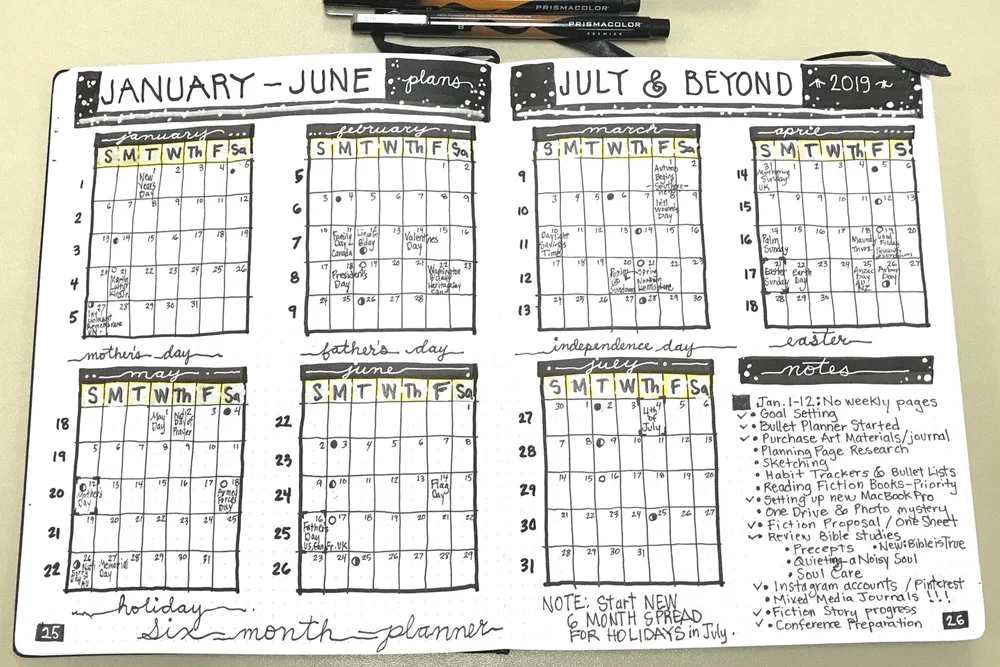 PRISMACOLOR
PRISMACOLOR
PREMIER
JANUARY - JUNE plans
JULY & BEYOND 2019
january
S M T W Th F Sa
1 New Years Day 2 3 4 5
2 6 7 8 9 10 11 12
3 13 14 15 16 17 18 19
4 20 21 Martin Luther King Jr. 22 23 24 25 26
5 27 Int'l Holocaust Remembrance 28 29 30 31
february
S M T W Th F Sa
5 1 2
6 3 4 5 6 7 8 9
7 10 11 Family Day Canada 12 Lincoln's B'day 13 14 Valentines Day 15 16
8 17 18 President's Day 19 20 21 22 Washington B'day Heritage Day 23
9 24 25 26 27 28
march
S M T W Th F S
9 1 Autumn Begins Southern 2
10 3 4 5 6 7 8 Int'l Women's Day 9
11 10 Daylight Savings Time 11 12 13 14 15 16
12 17 18 19 20 Purim @ Sundown 21 Spring Northern Hemisphere 22 23
13 24 25 26 27 28 29 30
april
S M T W Th F S
14 31 Mothering Sunday UK 1 2 3 4 5 6
15 7 8 9 10 11 12 13
16 14 Palm Sunday 15 16 17 18 Maundy Thurs. 19 Good Friday Passover @ sundown 20
17 21 Easter Sunday 22 Earth Day 23 24 25 Anzac Day AU NZ 26 Arbor Day 27
18 28 29 30
mother's day
father's day
independence day
easter
may
S M T W Th F Sa
18 1 May Day 2 Nat Day of Prayer 3 4
19 5 6 7 8 9 10 11
20 12 Mother's Day 13 14 15 16 17 18 Armed Forces Day
21 19 20 21 22 23 24 25
22 26 27 Memorial Day 28 29 30 31
june
S M T W Th F Sa
22 1
23 2 3 4 5 6 7 8
24 9 10 11 12 13 14 Flag Day 15
25 16 Father's Day US, Can, Fr, UK 17 18 19 20 21 22
26 23 24 25 26 27 28 29
july
S M T W Th F Sa
27 30 1 2 3 4 4th of July 5 6
28 7 8 9 10 11 12 13
29 14 15 16 17 18 19 20
30 21 22 23 24 25 26 27
31 28 29 30 31
notes
Jan. 1-12: No weekly pages
✓ • Goal Setting
• Bullet Planner Started
✓ • Purchase Art Materials/journal
• Planning Page Research
• Sketching
• Habit Trackers & Bullet Lists
• Reading Fiction Books-Priority
✓ • Setting up new MacBook Pro
• One Drive & Photo mystery
✓ • Fiction Proposal / One Sheet
✓ • Review Bible studies
• Precepts • New: Bible is True
• Quieting a Noisy Soul
• Soul Care
✓ • Instagram accounts / Pinterest
• Mixed Media Journals !!!
✓ • Fiction Story progress
✓ • Conference Preparation
holiday
six-month-planner
NOTE: Start NEW
6 MONTH SPREAD
FOR HOLIDAYS in July.
25
26